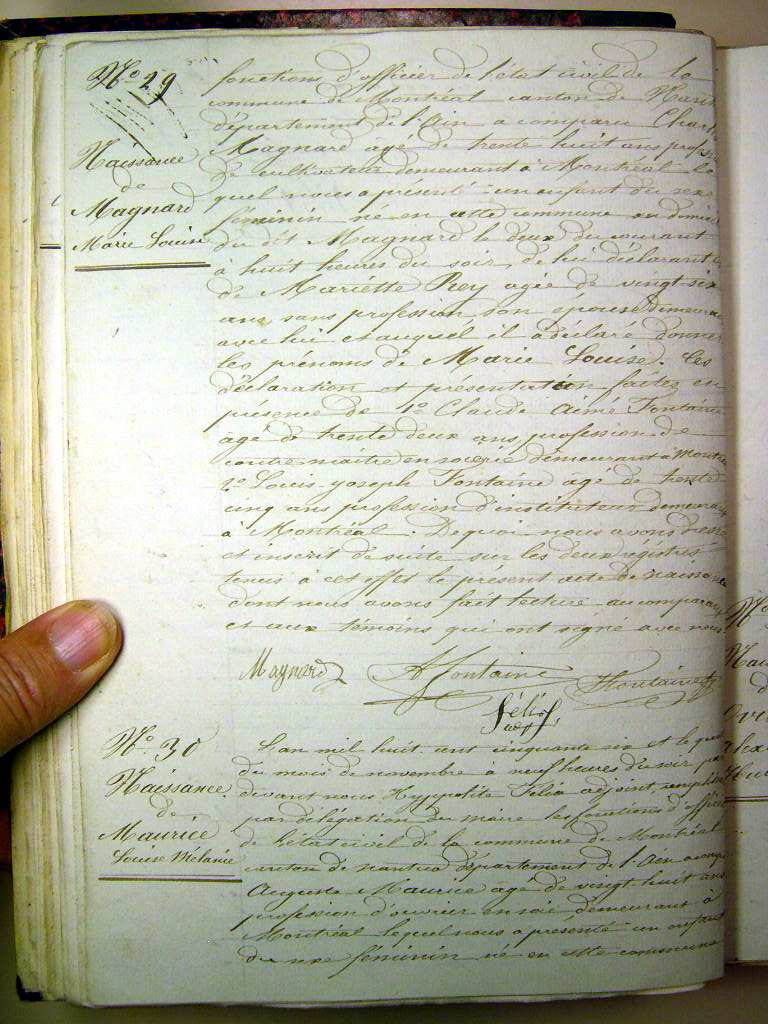 No 29
Naissance
de
Magnard
Marie Louise
fonctions d'officier de l'état civil de la
commune de Montréal canton de Nant
département de l'Ain a comparu Charl
Magnard agé de trente huit ans profess
de cultivateur demeurant à Montréal le
quel nous a présenté un enfant du sexe
féminin né en cette commune au domici
du dit Magnard le deux du courant
à huit heures du soir, de lui déclarant
de Mariette Rey agée de vingt-six
ans, sans profession son épouse demeura
avec lui et auquel il a déclaré donner
les prénoms de Marie Louise. Les
déclaration et présentation faites en
présence de 1o Claude Aimé Fontaine
agé de trente deux ans profession de
contremaitre en soierie demeurant à Montré
2o Louis Joseph Fontaine agé de trente
cinq ans profession d'instituteur demeura
à Montréal. De quoi nous avons dressé
et inscrit de suite sur les deux registres
tenus à cet effet le présent acte de naissance
dont nous avons fait lecture au compara
et aux témoins qui ont signé avec nous
Magnard
A Fontaine
Fontaine
Félix
adjt
No 30
Naissance
de
Maurice
Louise Mélanie
L'an mil huit cent cinquante six et le qua
du mois de novembre à neuf heures du soir par
devant nous Hyppolite Félix adjoint, remplissa
par délégation du maire les fonctions d'officier
de l'état civil de la commune de Montréal
canton de nantua département de l'Ain a comp
Auguste Maurice agé de vingt huit ans
profession d'ouvrier en soie demeurant à
Montréal lequel nous a présenté un enfant
du sexe féminin né en cette commune
No